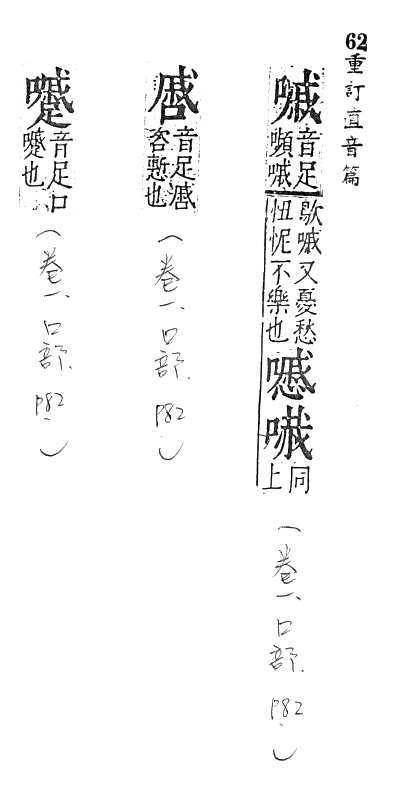 62
重訂直音篇
嘁
音足
顣嘁
歍嘁又憂愁
忸怩不樂也
慼
上同
(卷一、口部. P82)
音足
咨慙也
(卷一、口部. P82)
音足口
也
(卷一、口部. P82)